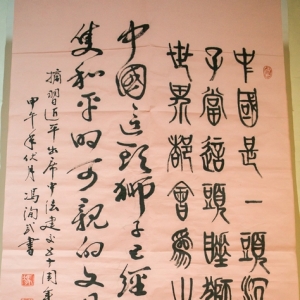 中國是一頭沉
子當這頭睡獅
世界都會為之
中國這頭獅子已經
隻和平的可親的文
摘習近平出席中法建交五十周年
甲午年伏月 馮 武書